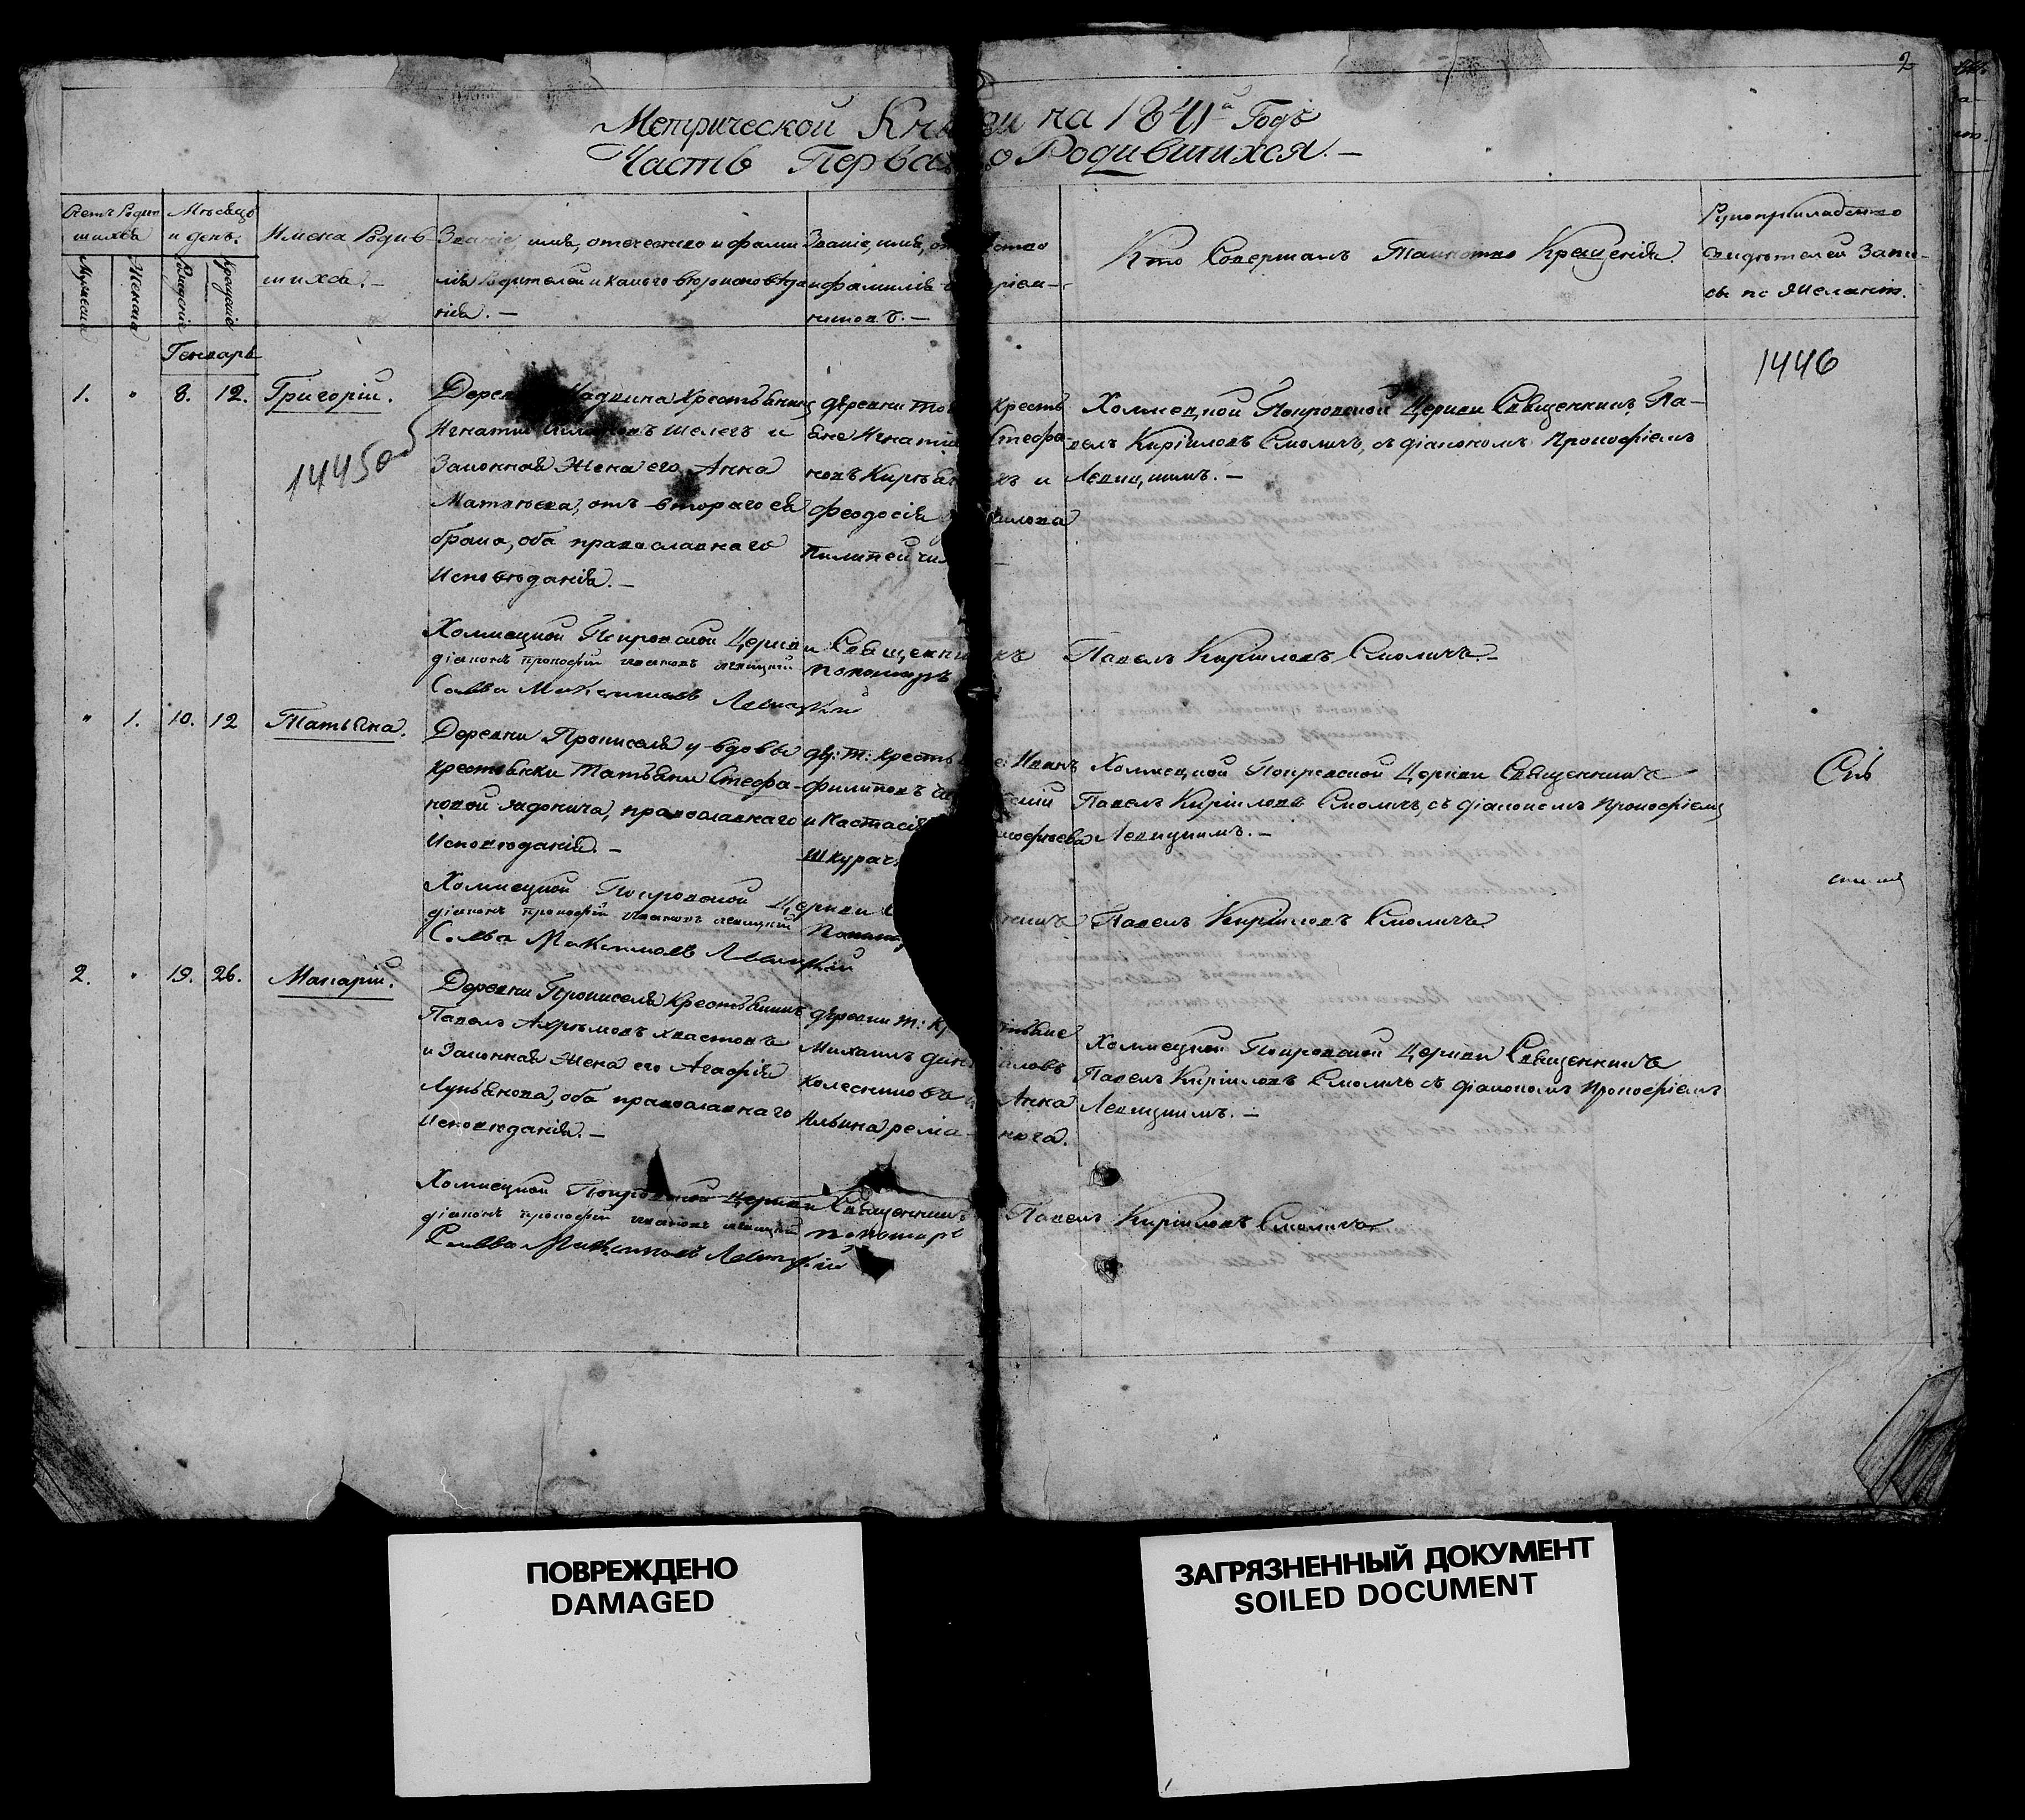 2
Метрической Книги на 1841й Годъ
Часть Перва о Родившихся. —
Счетъ Родив
шихся
Мужеска
Женска
Мѣсяцъ
и день.
Рожденіе
Крещеніе
Имена Родив-
шихся. —
Званіе, имя, отечество и фами
лія Родителей и какого вѣроисповѣда
нія. —
Званіе, имя, отчество
и фамилія воспріем-
никовъ. —
Кто Совершалъ Таинство Крещенія.
Рукоприкладство
свидѣтелей Запи-
си по Желанію.
Генварь
1446
1. " 8. 12. Григорій.
14450
Дерев Крестьянинъ
Игнатій Шелегъ и
Законная Жена его Анна
Матвѣева, отъ втораго ея
брака, оба православнаго
Исповѣданія. —
деревни Кресть
яне Игнатій Стефа
новъ и
Феодосія
Холмецкой Покровской Церкви Священникъ Па-
велъ Кирилловъ Смоличъ, съ діакономъ Прокофіемъ
Левицкимъ. —
Холмецкой Покровской Церкви Священникъ Павелъ Кирилловъ Смоличъ. —
діаконъ прокофій ивановъ левицкій пономарь
Савва Максимовъ Левицкій
" 1. 10. 12 Татьяна.
Деревни Прокиселя у вдовы
крестьянки Татьяны Стефа-
новой, православнаго
Исповѣданія. —
др: т: кресть Иванъ
Филиповъ
и Настасія
Шкурач
Холмецкой Покровской Церкви Священникъ
Павелъ Кирилловъ Смоличъ, съ діакономъ Прокофіемъ
Левицкимъ. —
Холмецкой Покровской Церкви Павелъ Кирилловъ Смоличъ
діаконъ прокофій ивановъ левицкій Понома
Савва Максимовъ Левицкій
2. " 19. 26. Макарій.
Деревни Прокиселя Крестьянинъ
Павелъ Ахрѣмовъ Хвастовъ
и Законная Жена его Агафія
Лукьянова, оба православнаго
Исповѣданія. —
деревни т: Кр тьяне
Михаилъ Дан иловъ
Колесниковъ и Анна
Ильина
Холмецкой Покровской Церкви Священникъ
Павелъ Кирилловъ Смоличъ съ діакономъ Прокофіемъ
Левицкимъ. —
Холмецкой Покровской Церкви Священникъ Павелъ Кирилловъ Смоличъ
діаконъ прокофій ивановъ левицкій пономарь
Савва Максимовъ Левицкій
ПОВРЕЖДЕНО
DAMAGED
ЗАГРЯЗНЕННЫЙ ДОКУМЕНТ
SOILED DOCUMENT